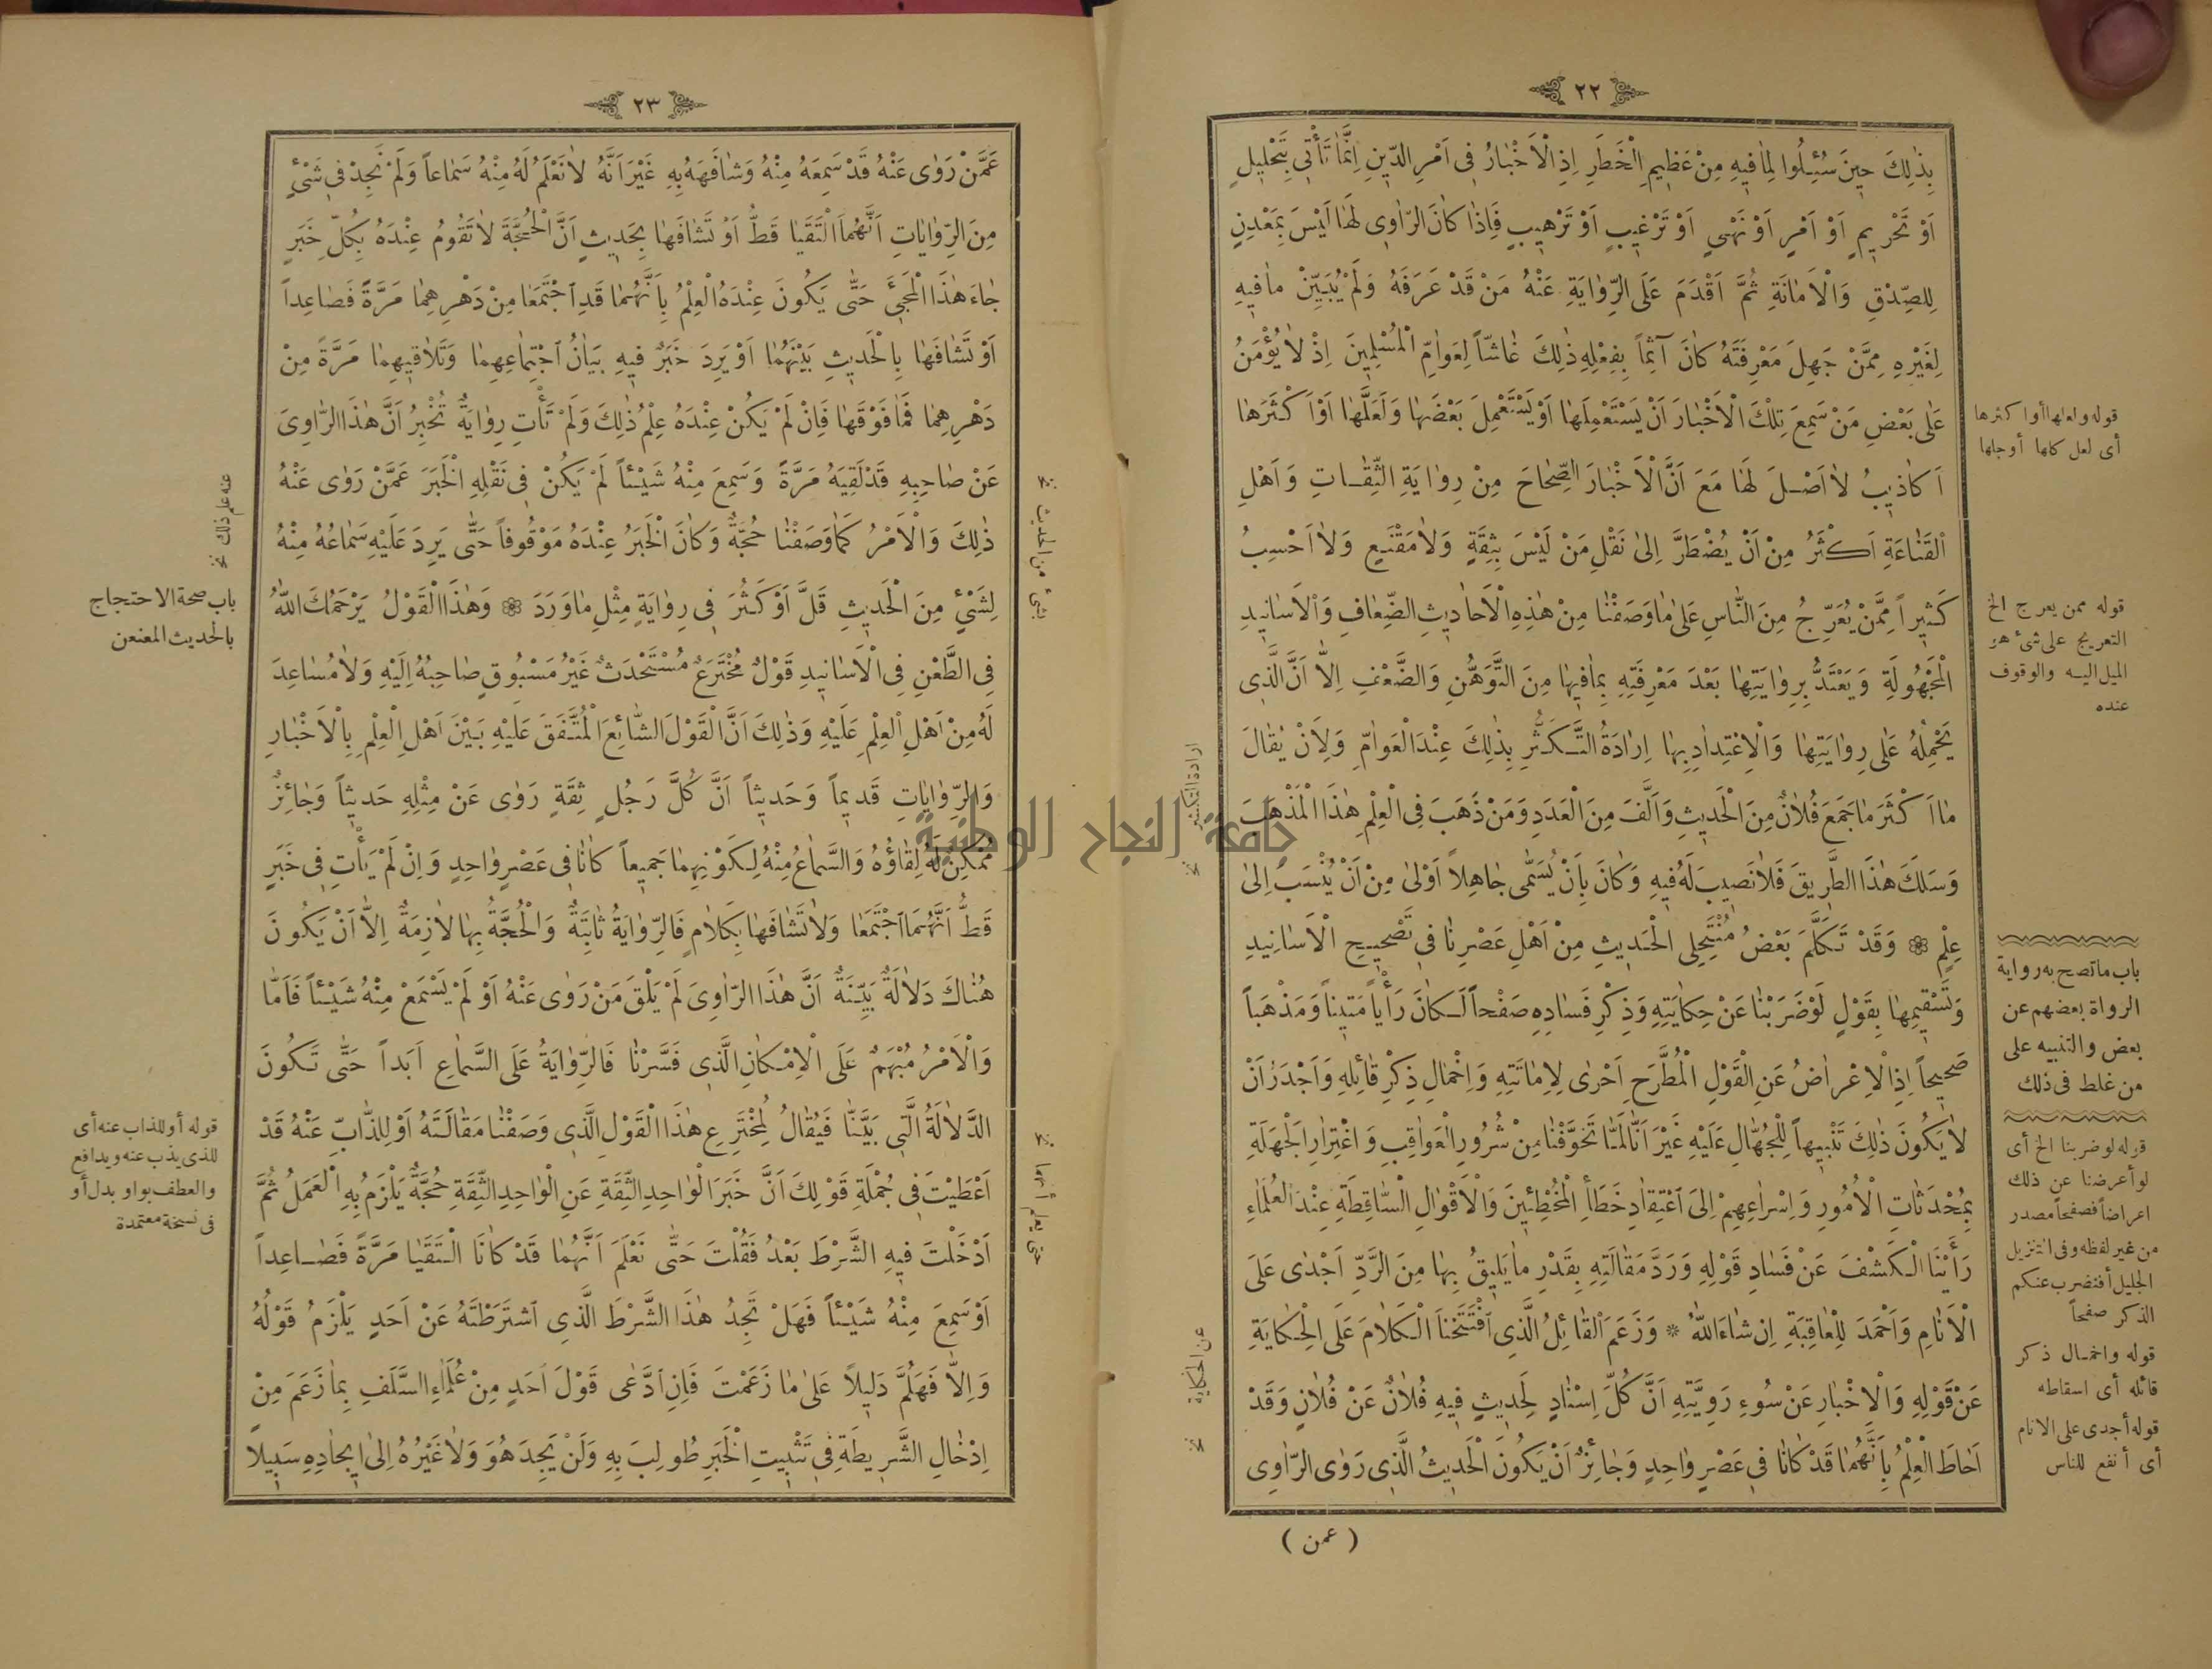 ٢٢
بِذٰلِكَ حِينَ سُئِلُوا لِمَا فِيهِ مِنْ عَظِيمِ الْخَطَرِ اِذِ الْاَخْبَارُ فِى اَمْرِ الدِّينِ اِنَّمَا تَأْتِى بِتَحْلِيلٍ
اَوْ تَحْرِيمٍ اَوْ اَمْرٍ اَوْ نَهْىٍ اَوْ تَرْغِيبٍ اَوْ تَرْهِيبٍ فَاِذَا كَانَ الرَّاوِى لَهَا لَيْسَ بِمَعْدِنٍ
لِلصِّدْقِ وَالْاَمَانَةِ ثُمَّ اَقْدَمَ عَلَى الرِّوَايَةِ عَنْهُ مَنْ قَدْ عَرَفَهُ وَلَمْ يُبَيِّنْ مَا فِيهِ
لِغَيْرِهِ مِمَّنْ جَهِلَ مَعْرِفَتَهُ كَانَ آثِمًا بِفِعْلِهِ ذٰلِكَ غَاشًّا لِعَوَامِّ الْمُسْلِمِينَ اِذْ لَا يُؤْمَنُ
عَلٰى بَعْضِ مَنْ سَمِعَ تِلْكَ الْاَخْبَارَ اَنْ يَسْتَعْمِلَهَا اَوْ يَسْتَعْمِلَ بَعْضَهَا وَلَعَلَّهَا اَوْ اَكْثَرَهَا
اَكَاذِيبُ لَا اَصْلَ لَهَا مَعَ اَنَّ الْاَخْبَارَ الصِّحَاحَ مِنْ رِوَايَةِ الثِّقَاتِ وَاَهْلِ
الْقَنَاعَةِ اَكْثَرُ مِنْ اَنْ يُضْطَرَّ اِلٰى نَقْلِ مَنْ لَيْسَ بِثِقَةٍ وَلَا مَقْنَعٍ وَلَا اَحْسِبُ
كَثِيرًا مِمَّنْ يُعَرِّجُ مِنَ النَّاسِ عَلٰى مَا وَصَفْنَا مِنْ هٰذِهِ الْاَحَادِيثِ الضِّعَافِ وَالْاَسَانِيدِ
الْمَجْهُولَةِ وَيَعْتَدُّ بِرِوَايَتِهَا بَعْدَ مَعْرِفَتِهِ بِمَا فِيهَا مِنَ التَّوَهُّنِ وَالضَّعْفِ اِلَّا اَنَّ الَّذِى
يَحْمِلُهُ عَلٰى رِوَايَتِهَا وَالْاِعْتِدَادِ بِهَا اِرَادَةُ التَّكَثُّرِ بِذٰلِكَ عِنْدَ الْعَوَامِّ وَلِاَنْ يُقَالَ
مَا اَكْثَرَ مَا جَمَعَ فُلَانٌ مِنَ الْحَدِيثِ وَاَلَّفَ مِنَ الْعَدَدِ وَمَنْ ذَهَبَ فِى الْعِلْمِ هٰذَا الْمَذْهَبَ
وَسَلَكَ هٰذَا الطَّرِيقَ فَلَا نَصِيبَ لَهُ فِيهِ وَكَانَ بِاَنْ يُسَمّٰى جَاهِلًا اَوْلٰى مِنْ اَنْ يُنْسَبَ اِلٰى
عِلْمٍ ۞ وَقَدْ تَكَلَّمَ بَعْضُ مُنْتَحِلِى الْحَدِيثِ مِنْ اَهْلِ عَصْرِنَا فِى تَصْحِيحِ الْاَسَانِيدِ
وَتَسْقِيمِهَا بِقَوْلٍ لَوْ ضَرَبْنَا عَنْ حِكَايَتِهِ وَذِكْرِ فَسَادِهِ صَفْحًا لَكَانَ رَأْيًا مَتِينًا وَمَذْهَبًا
صَحِيحًا اِذِ الْاِعْرَاضُ عَنِ الْقَوْلِ الْمُطَّرَحِ اَحْرٰى لِاِمَاتَتِهِ وَاِخْمَالِ ذِكْرِ قَائِلِهِ وَاَجْدَرُ اَنْ
لَا يَكُونَ ذٰلِكَ تَنْبِيهًا لِلْجُهَّالِ عَلَيْهِ غَيْرَ اَنَّا لَمَّا تَخَوَّفْنَا مِنْ شُرُورِ الْعَوَاقِبِ وَاغْتِرَارِ الْجَهَلَةِ
بِمُحْدَثَاتِ الْاُمُورِ وَاِسْرَاعِهِمْ اِلَى اعْتِقَادِ خَطَأِ الْمُخْطِئِينَ وَالْاَقْوَالِ السَّاقِطَةِ عِنْدَ الْعُلَمَاءِ
رَأَيْنَا الْكَشْفَ عَنْ فَسَادِ قَوْلِهِ وَرَدَّ مَقَالَتِهِ بِقَدْرِ مَا يَلِيقُ بِهَا مِنَ الرَّدِّ اَجْدٰى عَلَى
الْاَنَامِ وَاَحْمَدَ لِلْعَاقِبَةِ اِنْ شَاءَ اللّٰهُ * وَزَعَمَ الْقَائِلُ الَّذِى افْتَتَحْنَا الْكَلَامَ عَلَى الْحِكَايَةِ
عَنْ قَوْلِهِ وَالْاِخْبَارِ عَنْ سُوءِ رَوِيَّتِهِ اَنَّ كُلَّ اِسْنَادٍ لِحَدِيثٍ فِيهِ فُلَانٌ عَنْ فُلَانٍ وَقَدْ
اَحَاطَ الْعِلْمُ بِاَنَّهُمَا قَدْ كَانَا فِى عَصْرٍ وَاحِدٍ وَجَائِزٌ اَنْ يَكُونَ الْحَدِيثُ الَّذِى رَوَى الرَّاوِى
( عمن )
قوله ولعلها أو أكثرها
أى لعل كلها أو جلها
قوله ممن يعرج الخ
التعريج على شئ هو
الميل اليه والوقوف
عنده
باب ما تصح به رواية
الرواة بعضهم عن
بعض والتنبيه على
من غلط فى ذلك
قوله لو ضربنا الخ أى
لو أعرضنا عن ذلك
اعراضاً فصفحاً مصدر
من غير لفظه وفى التنزيل
الجليل أفنضرب عنكم
الذكر صفحاً
قوله واخمال ذكر
قائله أى اسقاطه
قوله أجدى على الانام
أى أنفع للناس
ارادة التكثير نخ
عن الحكاية نخ
٢٣
عَمَّنْ رَوٰى عَنْهُ قَدْ سَمِعَهُ مِنْهُ وَشَافَهَهُ بِهِ غَيْرَ اَنَّهُ لَا نَعْلَمُ لَهُ مِنْهُ سَمَاعًا وَلَمْ نَجِدْ فِى شَىْءٍ
مِنَ الرِّوَايَاتِ اَنَّهُمَا الْتَقَيَا قَطُّ اَوْ تَشَافَهَا بِحَدِيثٍ اَنَّ الْحُجَّةَ لَا تَقُومُ عِنْدَهُ بِكُلِّ خَبَرٍ
جَاءَ هٰذَا الْمَجِىءَ حَتّٰى يَكُونَ عِنْدَهُ الْعِلْمُ بِاَنَّهُمَا قَدِ اجْتَمَعَا مِنْ دَهْرِهِمَا مَرَّةً فَصَاعِدًا
اَوْ تَشَافَهَا بِالْحَدِيثِ بَيْنَهُمَا اَوْ يَرِدَ خَبَرٌ فِيهِ بَيَانُ اجْتِمَاعِهِمَا وَتَلَاقِيهِمَا مَرَّةً مِنْ
دَهْرِهِمَا فَمَا فَوْقَهَا فَاِنْ لَمْ يَكُنْ عِنْدَهُ عِلْمُ ذٰلِكَ وَلَمْ تَأْتِ رِوَايَةٌ تُخْبِرُ اَنَّ هٰذَا الرَّاوِىَ
عَنْ صَاحِبِهِ قَدْ لَقِيَهُ مَرَّةً وَسَمِعَ مِنْهُ شَيْئًا لَمْ يَكُنْ فِى نَقْلِهِ الْخَبَرَ عَمَّنْ رَوٰى عَنْهُ
ذٰلِكَ وَالْاَمْرُ كَمَا وَصَفْنَا حُجَّةٌ وَكَانَ الْخَبَرُ عِنْدَهُ مَوْقُوفًا حَتّٰى يَرِدَ عَلَيْهِ سَمَاعُهُ مِنْهُ
لِشَىْءٍ مِنَ الْحَدِيثِ قَلَّ اَوْ كَثُرَ فِى رِوَايَةٍ مِثْلِ مَا وَرَدَ ۞ وَهٰذَا الْقَوْلُ يَرْحَمُكَ اللّٰهُ
فِى الطَّعْنِ فِى الْاَسَانِيدِ قَوْلٌ مُخْتَرَعٌ مُسْتَحْدَثٌ غَيْرُ مَسْبُوقٍ صَاحِبُهُ اِلَيْهِ وَلَا مُسَاعِدَ
لَهُ مِنْ اَهْلِ الْعِلْمِ عَلَيْهِ وَذٰلِكَ اَنَّ الْقَوْلَ الشَّائِعَ الْمُتَّفَقَ عَلَيْهِ بَيْنَ اَهْلِ الْعِلْمِ بِالْاَخْبَارِ
وَالرِّوَايَاتِ قَدِيمًا وَحَدِيثًا اَنَّ كُلَّ رَجُلٍ ثِقَةٍ رَوٰى عَنْ مِثْلِهِ حَدِيثًا وَجَائِزٌ
مُمْكِنٌ لَهُ لِقَاؤُهُ وَالسَّمَاعُ مِنْهُ لِكَوْنِهِمَا جَمِيعًا كَانَا فِى عَصْرٍ وَاحِدٍ وَاِنْ لَمْ يَأْتِ فِى خَبَرٍ
قَطُّ اَنَّهُمَا اجْتَمَعَا وَلَا تَشَافَهَا بِكَلَامٍ فَالرِّوَايَةُ ثَابِتَةٌ وَالْحُجَّةُ بِهَا لَازِمَةٌ اِلَّا اَنْ يَكُونَ
هُنَاكَ دَلَالَةٌ بَيِّنَةٌ اَنَّ هٰذَا الرَّاوِىَ لَمْ يَلْقَ مَنْ رَوٰى عَنْهُ اَوْ لَمْ يَسْمَعْ مِنْهُ شَيْئًا فَاَمَّا
وَالْاَمْرُ مُبْهَمٌ عَلَى الْاِمْكَانِ الَّذِى فَسَّرْنَا فَالرِّوَايَةُ عَلَى السَّمَاعِ اَبَدًا حَتّٰى تَكُونَ
الدَّلَالَةُ الَّتِى بَيَّنَّا فَيُقَالُ لِمُخْتَرِعِ هٰذَا الْقَوْلِ الَّذِى وَصَفْنَا مَقَالَتَهُ اَوْ لِلذَّابِّ عَنْهُ قَدْ
اَعْطَيْتَ فِى جُمْلَةِ قَوْلِكَ اَنَّ خَبَرَ الْوَاحِدِ الثِّقَةِ عَنِ الْوَاحِدِ الثِّقَةِ حُجَّةٌ يَلْزَمُ بِهِ الْعَمَلُ ثُمَّ
اَدْخَلْتَ فِيهِ الشَّرْطَ بَعْدُ فَقُلْتَ حَتّٰى نَعْلَمَ اَنَّهُمَا قَدْ كَانَا الْتَقَيَا مَرَّةً فَصَاعِدًا
اَوْ سَمِعَ مِنْهُ شَيْئًا فَهَلْ تَجِدُ هٰذَا الشَّرْطَ الَّذِى اشْتَرَطْتَهُ عَنْ اَحَدٍ يَلْزَمُ قَوْلُهُ
وَاِلَّا فَهَلُمَّ دَلِيلًا عَلٰى مَا زَعَمْتَ فَاِنِ ادَّعٰى قَوْلَ اَحَدٍ مِنْ عُلَمَاءِ السَّلَفِ بِمَا زَعَمَ مِنْ
اِدْخَالِ الشَّرِيطَةِ فِى تَثْبِيتِ الْخَبَرِ طُولِبَ بِهِ وَلَنْ يَجِدَ هُوَ وَلَا غَيْرُهُ اِلٰى اِيجَادِهِ سَبِيلًا
بشئ من الحديث نخ
حتى يعلم أنهما نخ
عنه علم ذلك نخ
باب صحة الاحتجاج
بالحديث المعنعن
قوله أو للذاب عنه أى
للذى يذب عنه ويدافع
والعطف بواو بدل أو
فى نسخة معتمدة
جامعة النجاح الوطنية